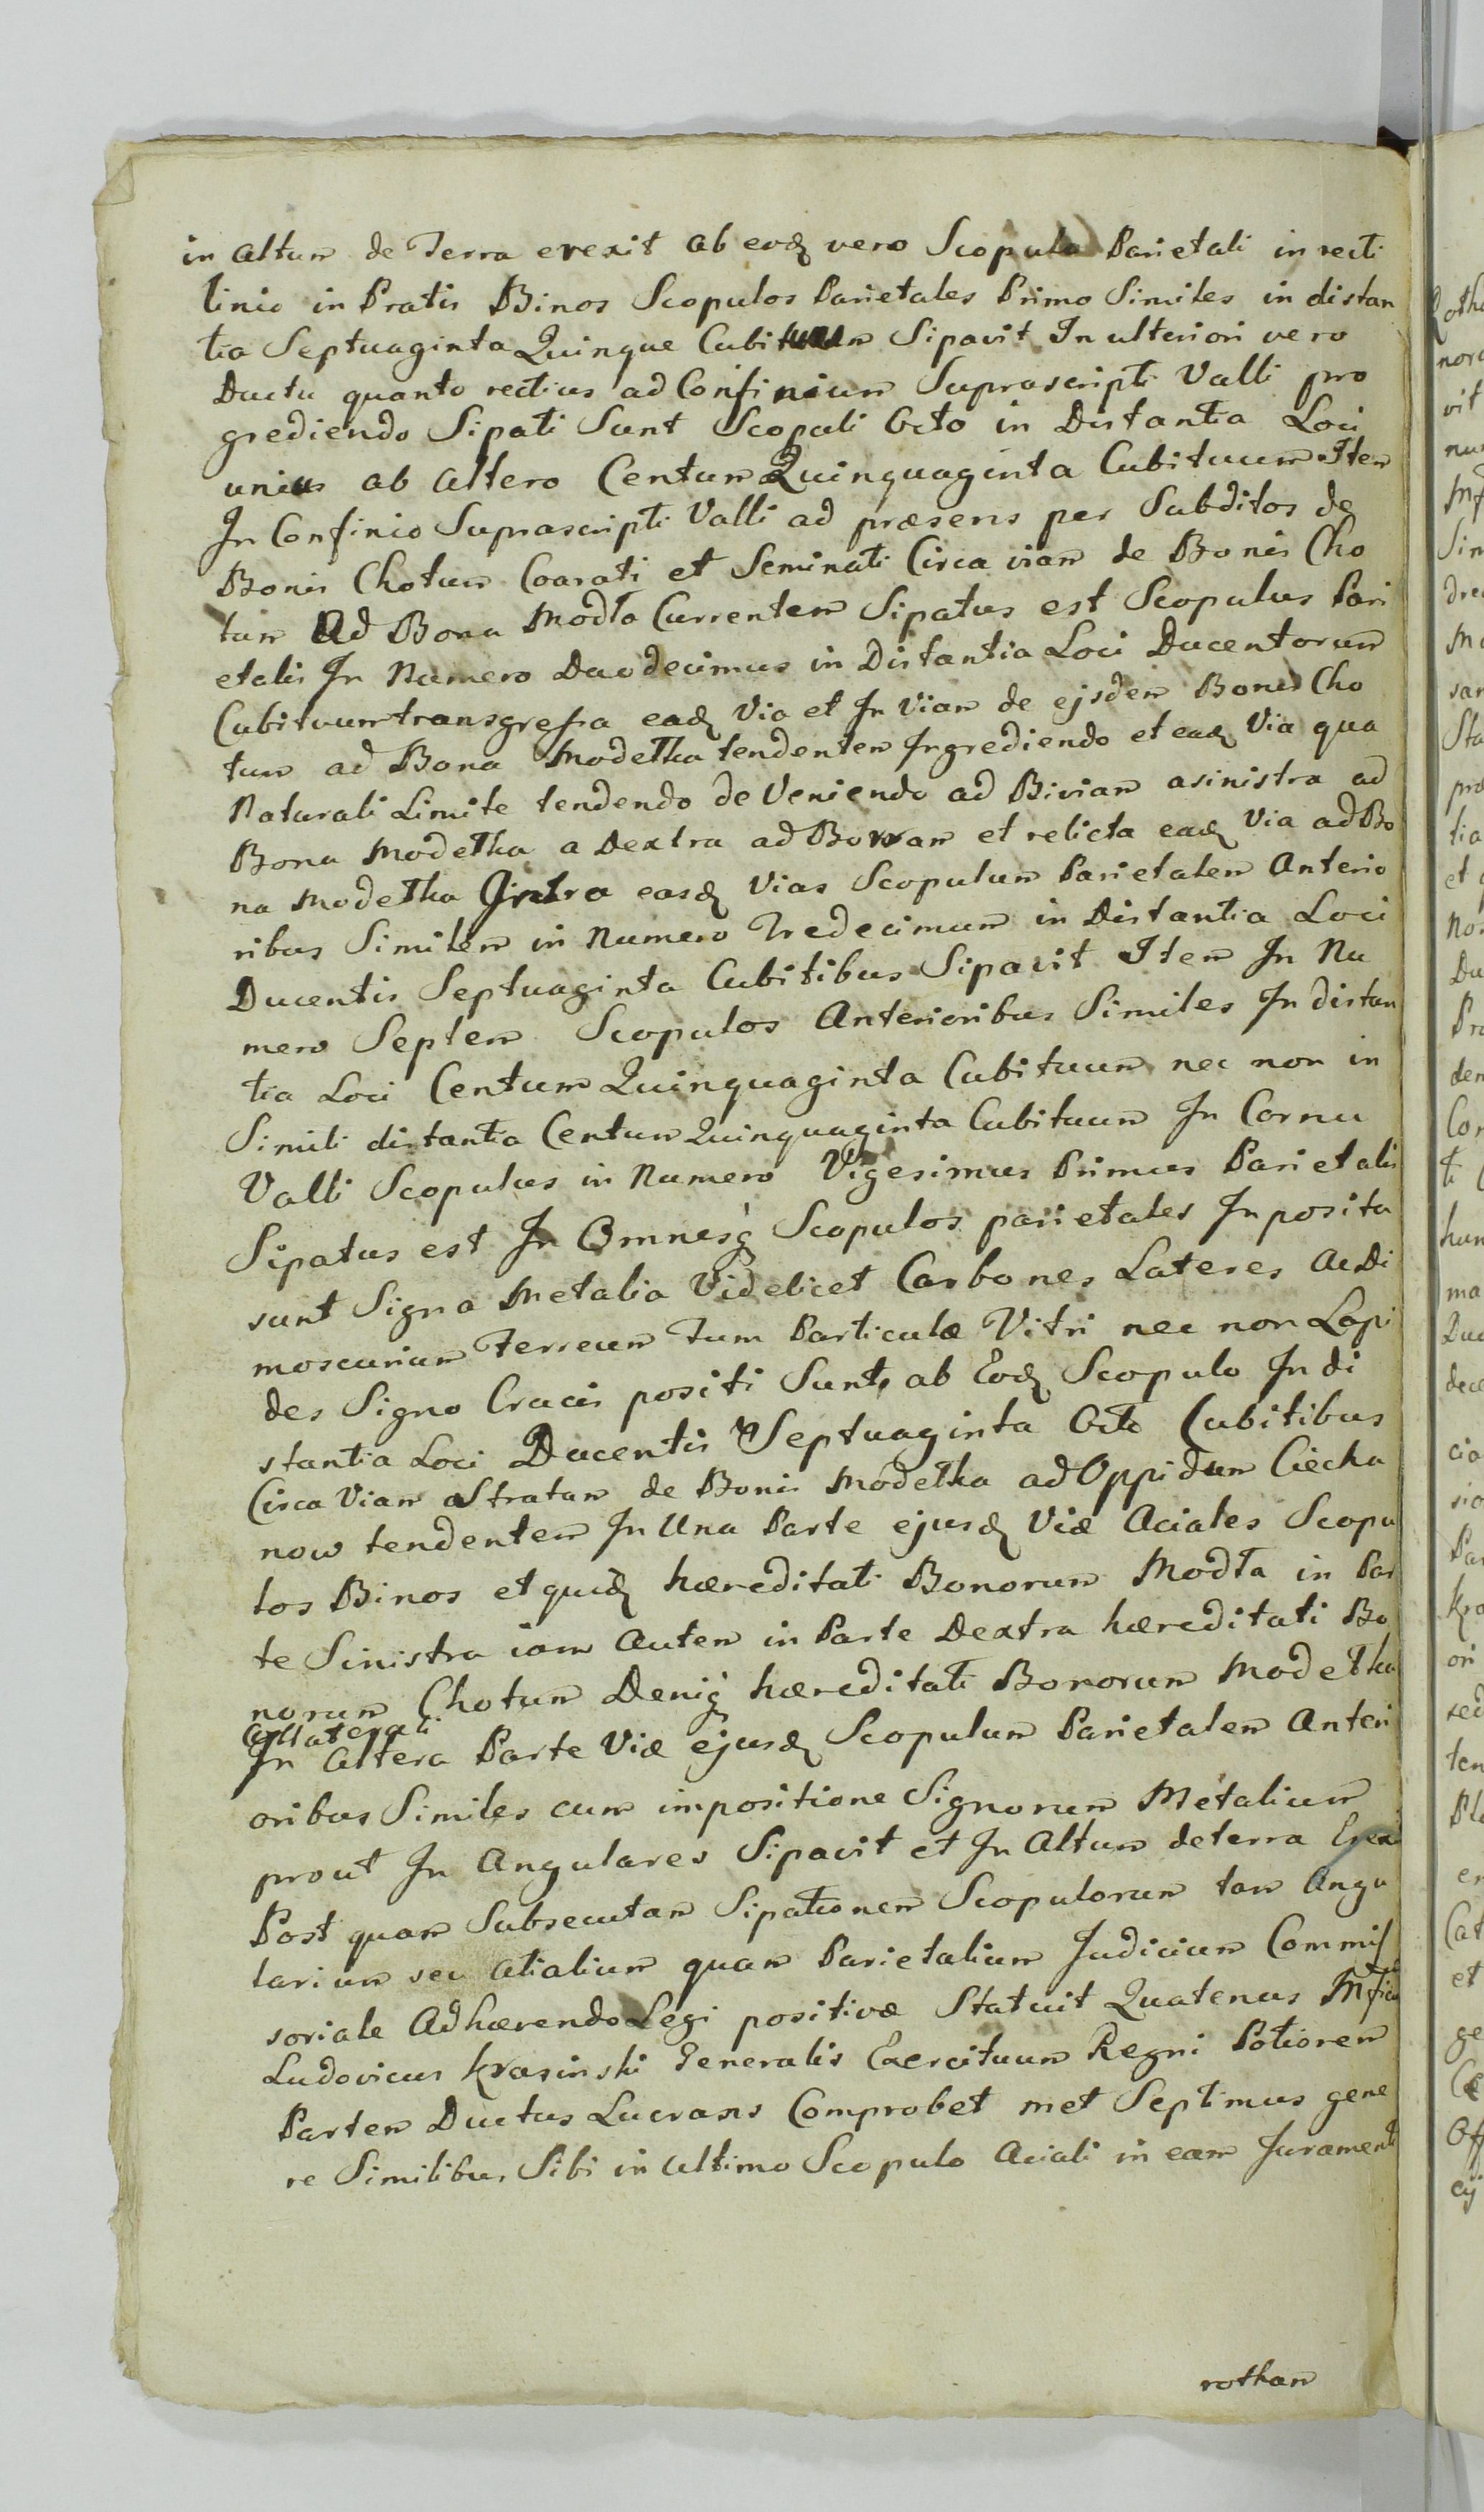 in altum de Terra erexit ab eodꝫ vero Scopulo Parietali in recti
linio in Pratis Binos Scopulos Parietales Primo Similes in distan
tia Septuaginta Quinque Cubituum Sipavit In ulteriori vero
Ductu quanto rectius ad Confinium Suprascripti Valli pro
grediendo Sipati Sunt Scopuli Octo in Distantia Loci
unius ab altero Centum Quinquaginta Cubituum Item
In Confinio Suprascripti Valli ad præsens per Subditos de
Bonis Chotum Coarati et Seminati Circa viam de Bonis Cho
tum Ad Bona Modła Currentem Sipatus est Scopulus Pari
etalis In Numero Duodecimus in Distantia Loci Ducentorum
Cubituum transgressa eadꝫ Via et In Viam de ejsdem Bonis Cho
tum ad Bona Modełka tendentem Ingrediendo et eadꝫ Via qua
Naturali Limite tendendo de Veniendo ad Biviam a sinistra ad
Bona Modełka a Dextra ad Bowam et relicta eadꝫ Via ad Bo
na Modełka Intra easdꝫ Vias Scopulum Parietalem Anterio
ribus Similem in Numero Tredecimum in Distantia Loci
Ducentis Septuaginta Cubitibus Sipavit Item In Nu
mero Septem Scopulos Anterioribus Similes In distan
tia Loci Centum Quinquaginta Cubituum nec non in
Simili distantia Centum Quinquaginta Cubituum In Cornu
Valli Scopulus in Numero Vigesimus Primus Parietalis
Sipatus est In Omnesq̃ Scopulos parietales Inposita
sunt Signa Metalia Videlicet Carbones Lateres Ac Di
moscurium Ferreum Tum Particulæ Vitri nec non Lapi
des Signo Crucis positi Sunt, ab Eodꝫ Scopulo In di
stantia Loci Ducentis Septuaginta Octo Cubitibus
Circa Viam Stratam de Bonis Modełka ad Oppidum Ciecha
now tendentem In Una Parte ejusdꝫ Viæ Aciales Scopu
los Binos et quidꝫ hæreditati Bonorum Modła in Par
te Sinistra iam Autem in Parte Dextra hæreditati Bo
norum Chotum Deniq̃ hæreditati Bonorum Modełka
Collaterali
In Altera Parte Viæ ejusdꝫ Scopulum Parietalem Anteri
oribus Similes cum impositione Signorum Metalium
prout In Angulares Sipavit et In Altum de terra Erexi
Post quam Subsecutam Sipationem Scopulorum tam Angu
larium seu atialium quam Parietalium Judicium Commis
soriale Adhærendo Legi positivæ Statuit Quatenus Mfcus
Ludovicus Krasinski Generalis Exercituum Regni Potiorem
Partem Ductus Lucrans Comprobet met Septimus gene
re Similibus Sibi in Ultimo Scopulo Aciali in eam Jurament
rotham